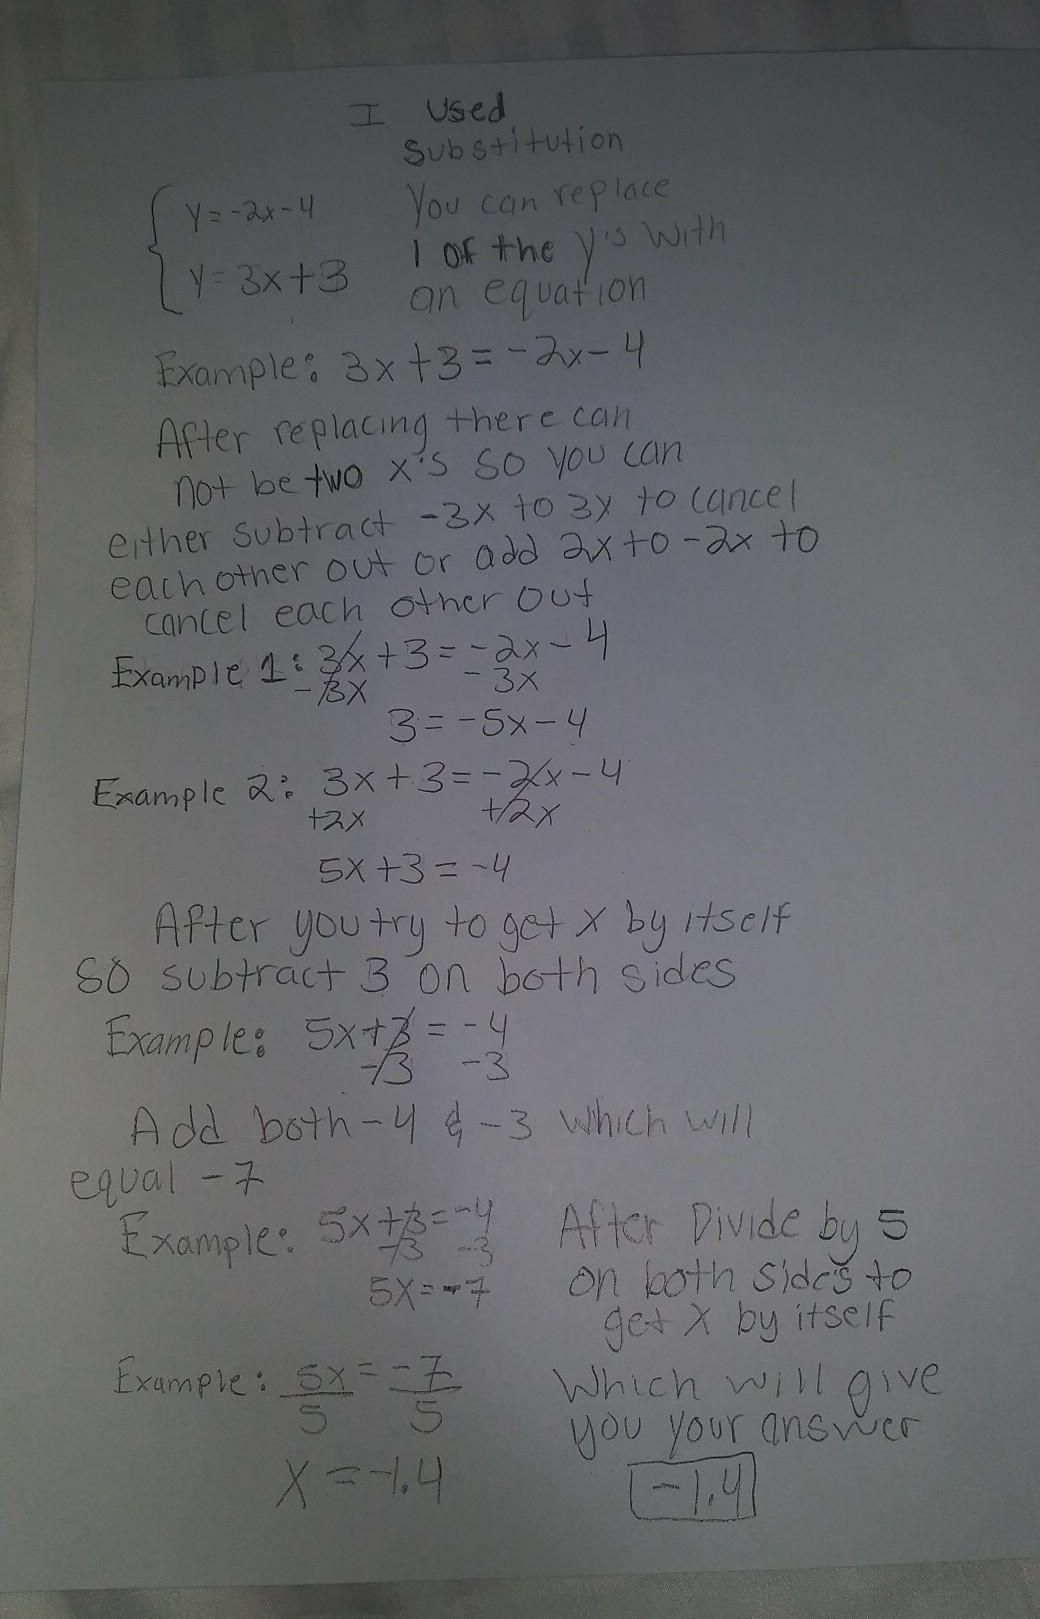 I Used
Substitution
y=-2x-4
You can replace
1 of the y's with
y=3x+3
an equation
Example: 3x+3=-2x-4
After replacing there can
not be two x's so you can
either subtract -3x to 3x to cancel
each other out or add 2x to -2x to
cancel each other out
Example 1: 3x+3=-2x-4
-3x -3x
3=-5x-4
Example 2: 3x+3=-2x-4
+2x +2x
5x+3=-4
After you try to get x by itself
so subtract 3 on both sides
Example: 5x+3=-4
-3 -3
Add both -4 & -3 which will
equal -7
Example: 5x+3=-4
-3 -3
5x=-7
After Divide by 5
on both sides to
get x by itself
Example: 5x=-7
5 5
x=-1.4
Which will give
you your answer
-1.4